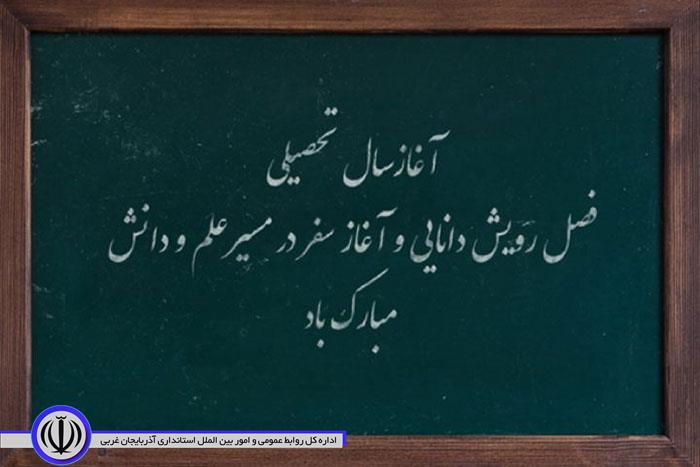 آغاز سال تحصیلی
فصل رویش دانایی و آغاز سفر در مسیر علم و دانش
مبارک باد
اداره کل روابط عمومی و امور بین الملل استانداری آذربایجان غربی